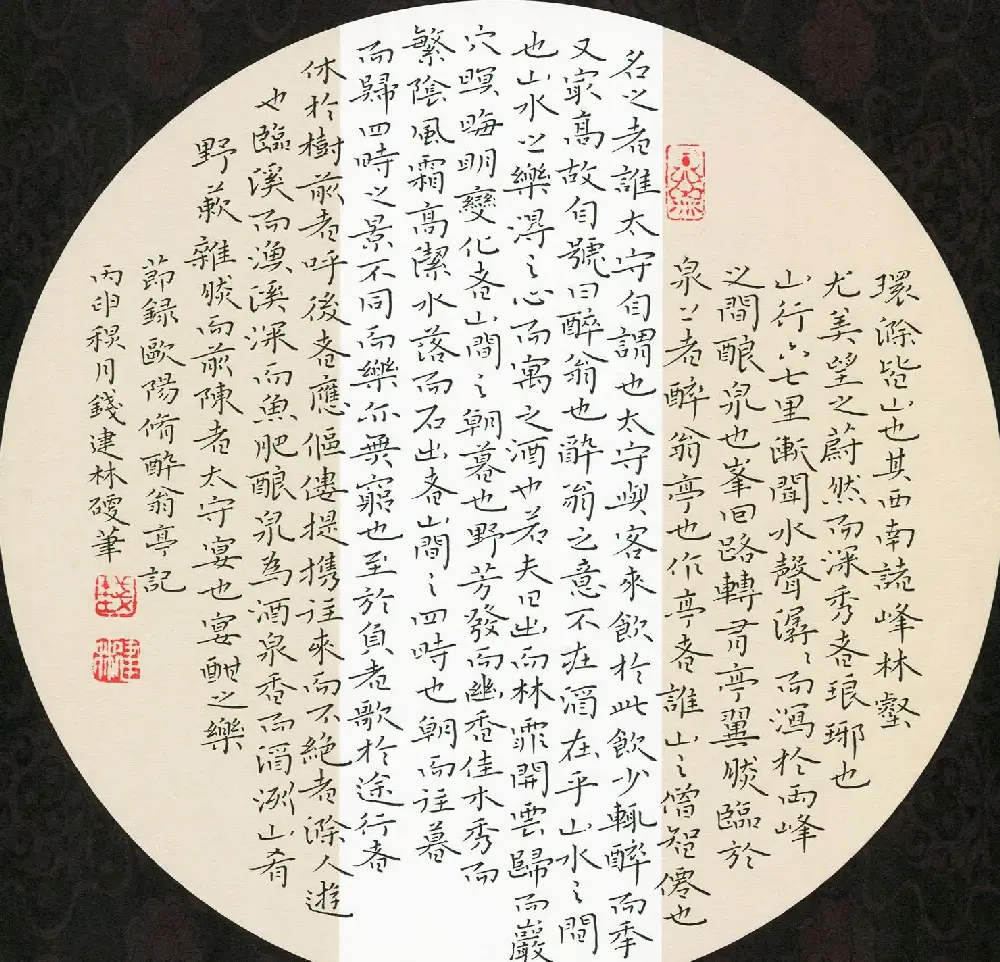 環滁皆山也其西南諸峰林壑
尤美望之蔚然而深秀者琅琊也
山行六七里漸聞水聲潺々而瀉於兩峰
之間釀泉也峯回路轉有亭翼然臨於
泉上者醉翁亭也作亭者誰山之僧智僊也
名之者誰太守自謂也太守與客來飲於此飲少輒醉而年
又最高故自號曰醉翁也醉翁之意不在酒在乎山水之間
也山水之樂得之心而寓之酒也若夫日出而林霏開雲歸而巖
穴暝晦明變化者山間之朝暮也野芳發而幽香佳木秀而
繁陰風霜高潔水落而石出者山間之四時也朝而往暮
而歸四時之景不同而樂亦無窮也至於負者歌於途行者
休於樹前者呼後者應傴僂提携往來而不絕者滁人遊
也臨溪而漁溪深而魚肥釀泉為酒泉香而酒洌山肴
野蔌雜然而前陳者太守宴也宴酣之樂
節錄歐陽脩醉翁亭記
丙申秋月錢建林硬筆